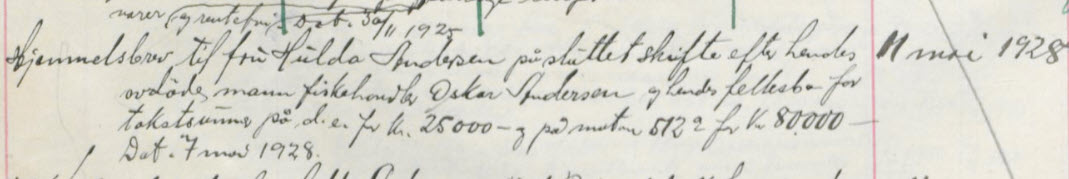 varer, g rentefri. Dat. 30/11 1925
Hjemmelsbrev til fru Hulda Andersen på sluttet skifte efter hendes 11 mai 1928
avdöde mann fiskehandler Oskar Andersen og hendes fellesbo for
takstsummer på d. e. for kr. 25000 — og på matr. 512 a for kr 80000 —
Dat. 7 mai 1928.